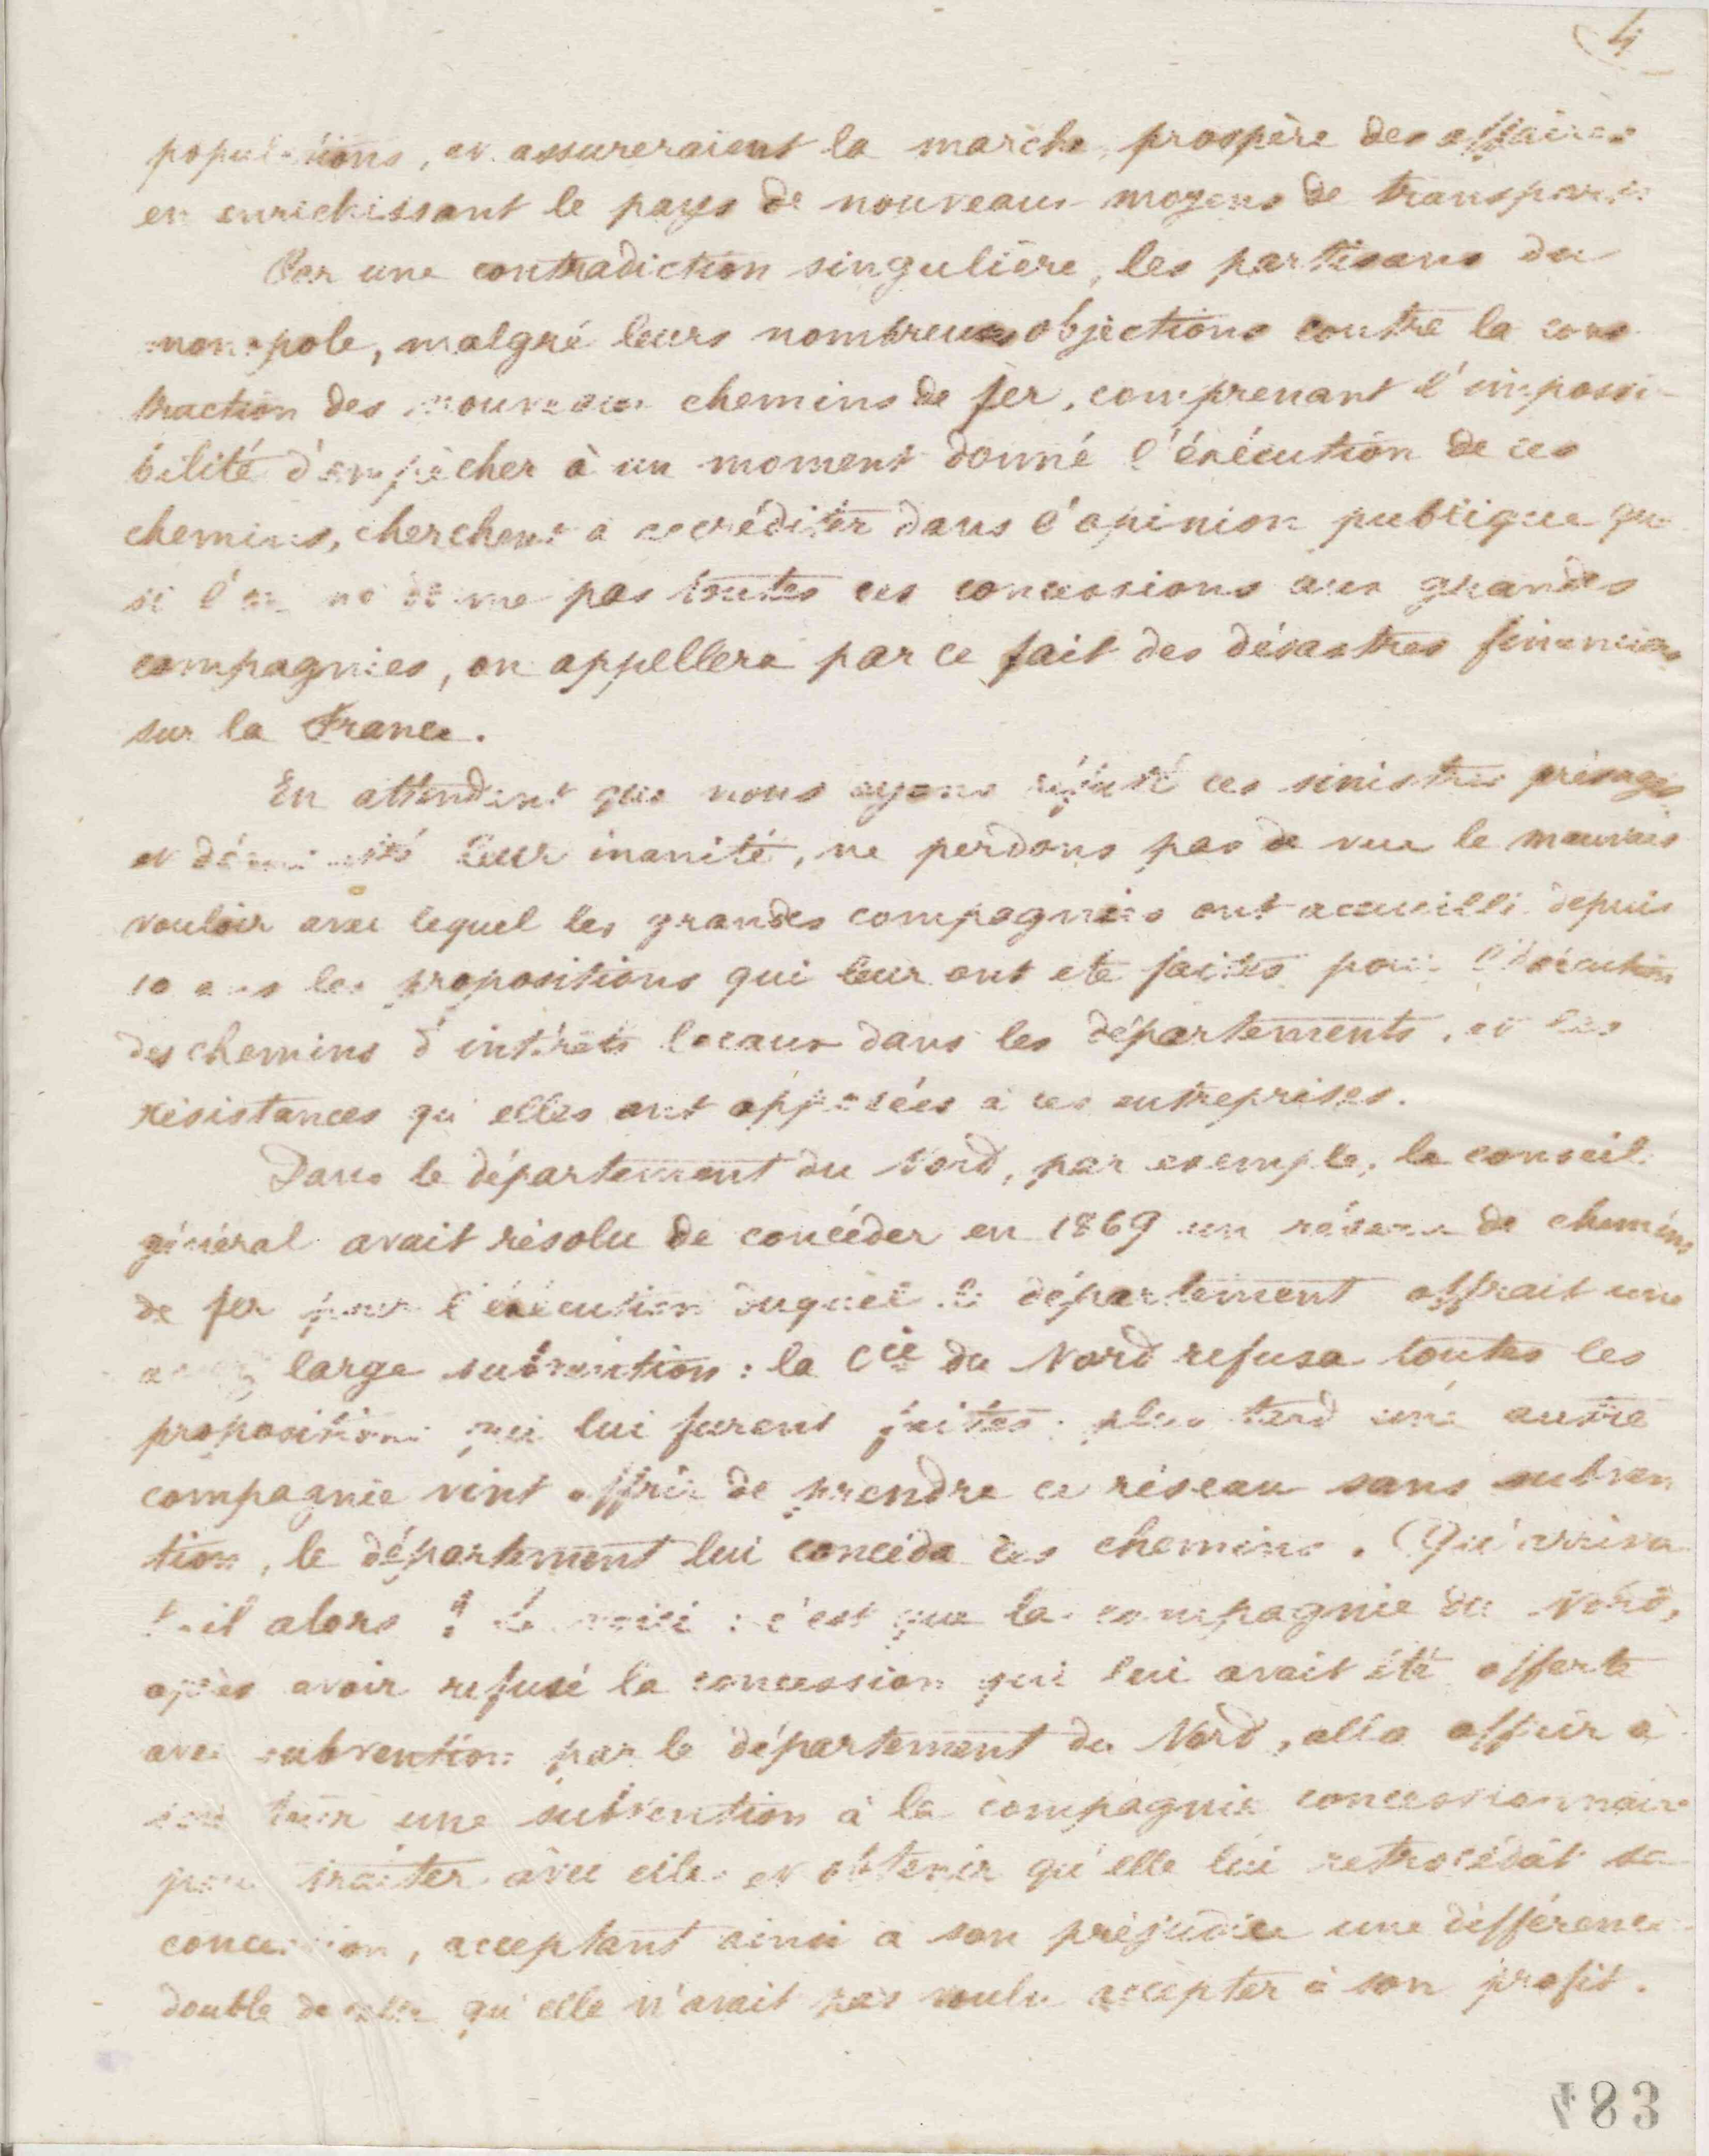 4
populations, et assureraient la marche prospère des affaires
en enrichissant le pays de nouveaux moyens de transports
Par une contradiction singulière, les partisans du
monopole, malgré leurs nombreuses objections contre la cons
truction des nouveaux chemins de fer, comprenant l'impossi-
bilité d'empêcher à un moment donné l'exécution de ces
chemins, cherchent à accréditer dans l'opinion publique que
si l'on ne donne pas toutes ces concessions aux grandes
compagnies, on appellera par ce fait des désastres financiers
sur la France.
En attendant que nous ayons réfuté ces sinistres présages
et démontré leur inanité, ne perdons pas de vue le mauvais
vouloir avec lequel les grandes compagnies ont accueilli depuis
10 ans les propositions qui leur ont été faites pour l'exécution
des chemins d'intérêts locaux dans les départements, et les
résistances qu'elles ont opposées à ces entreprises.
Dans le département du Nord, par exemple, le conseil
général avait résolu de concéder en 1869 un réseau de chemins
de fer pour l'exécution duquel le département offrait une
assez large subvention : la Cie du Nord refusa toutes les
propositions qui lui furent faites. plus tard une autre
compagnie vint offrir de prendre ce réseau sans subven
tion, le département lui concéda ces chemins. Qu'arriva
t-il alors ? Le voici : c'est que la compagnie du Nord,
après avoir refusé la concession qui lui avait été offerte
avec subvention par le département du Nord, alla offrir à
son tour une subvention à la compagnie concessionnaire
pour traiter avec elle et obtenir qu'elle lui retrocédât sa
concession, acceptant ainsi à son préjudice une différence
double de celle qu'elle n'avait pas voulu accepter à son profit.
483